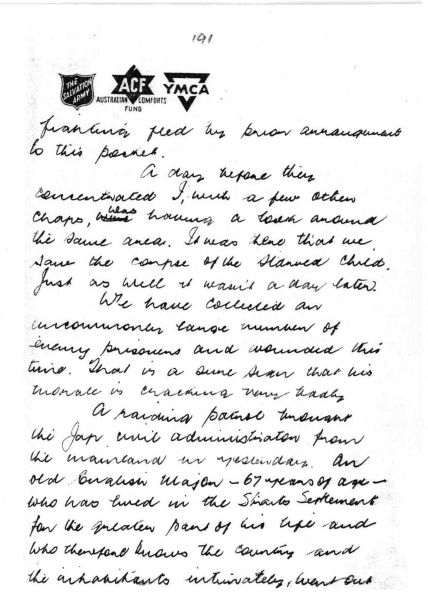 191
THE SALVATION ARMY
ACF
AUSTRALIAN COMFORTS FUND
YMCA
fighting fled by prior arrangement
to this pocket.
A day before they
concentrated I, with a few other
chaps, was having a look around
the same area. It was here that we
saw the corpse of the starved child.
Just as well it wasn't a day later.
We have collected an
uncommonly large number of
enemy prisoners and wounded this
time. That is a sure sign that his
morale is cracking very badly
A raiding patrol brought
the Jap civil administrator from
the mainland in yesterday. An
old English Major – 67 years of age –
who has lived in the Straits Settlement
for the greater part of his life and
who therefore knows the country and
the inhabitants intimately, went out